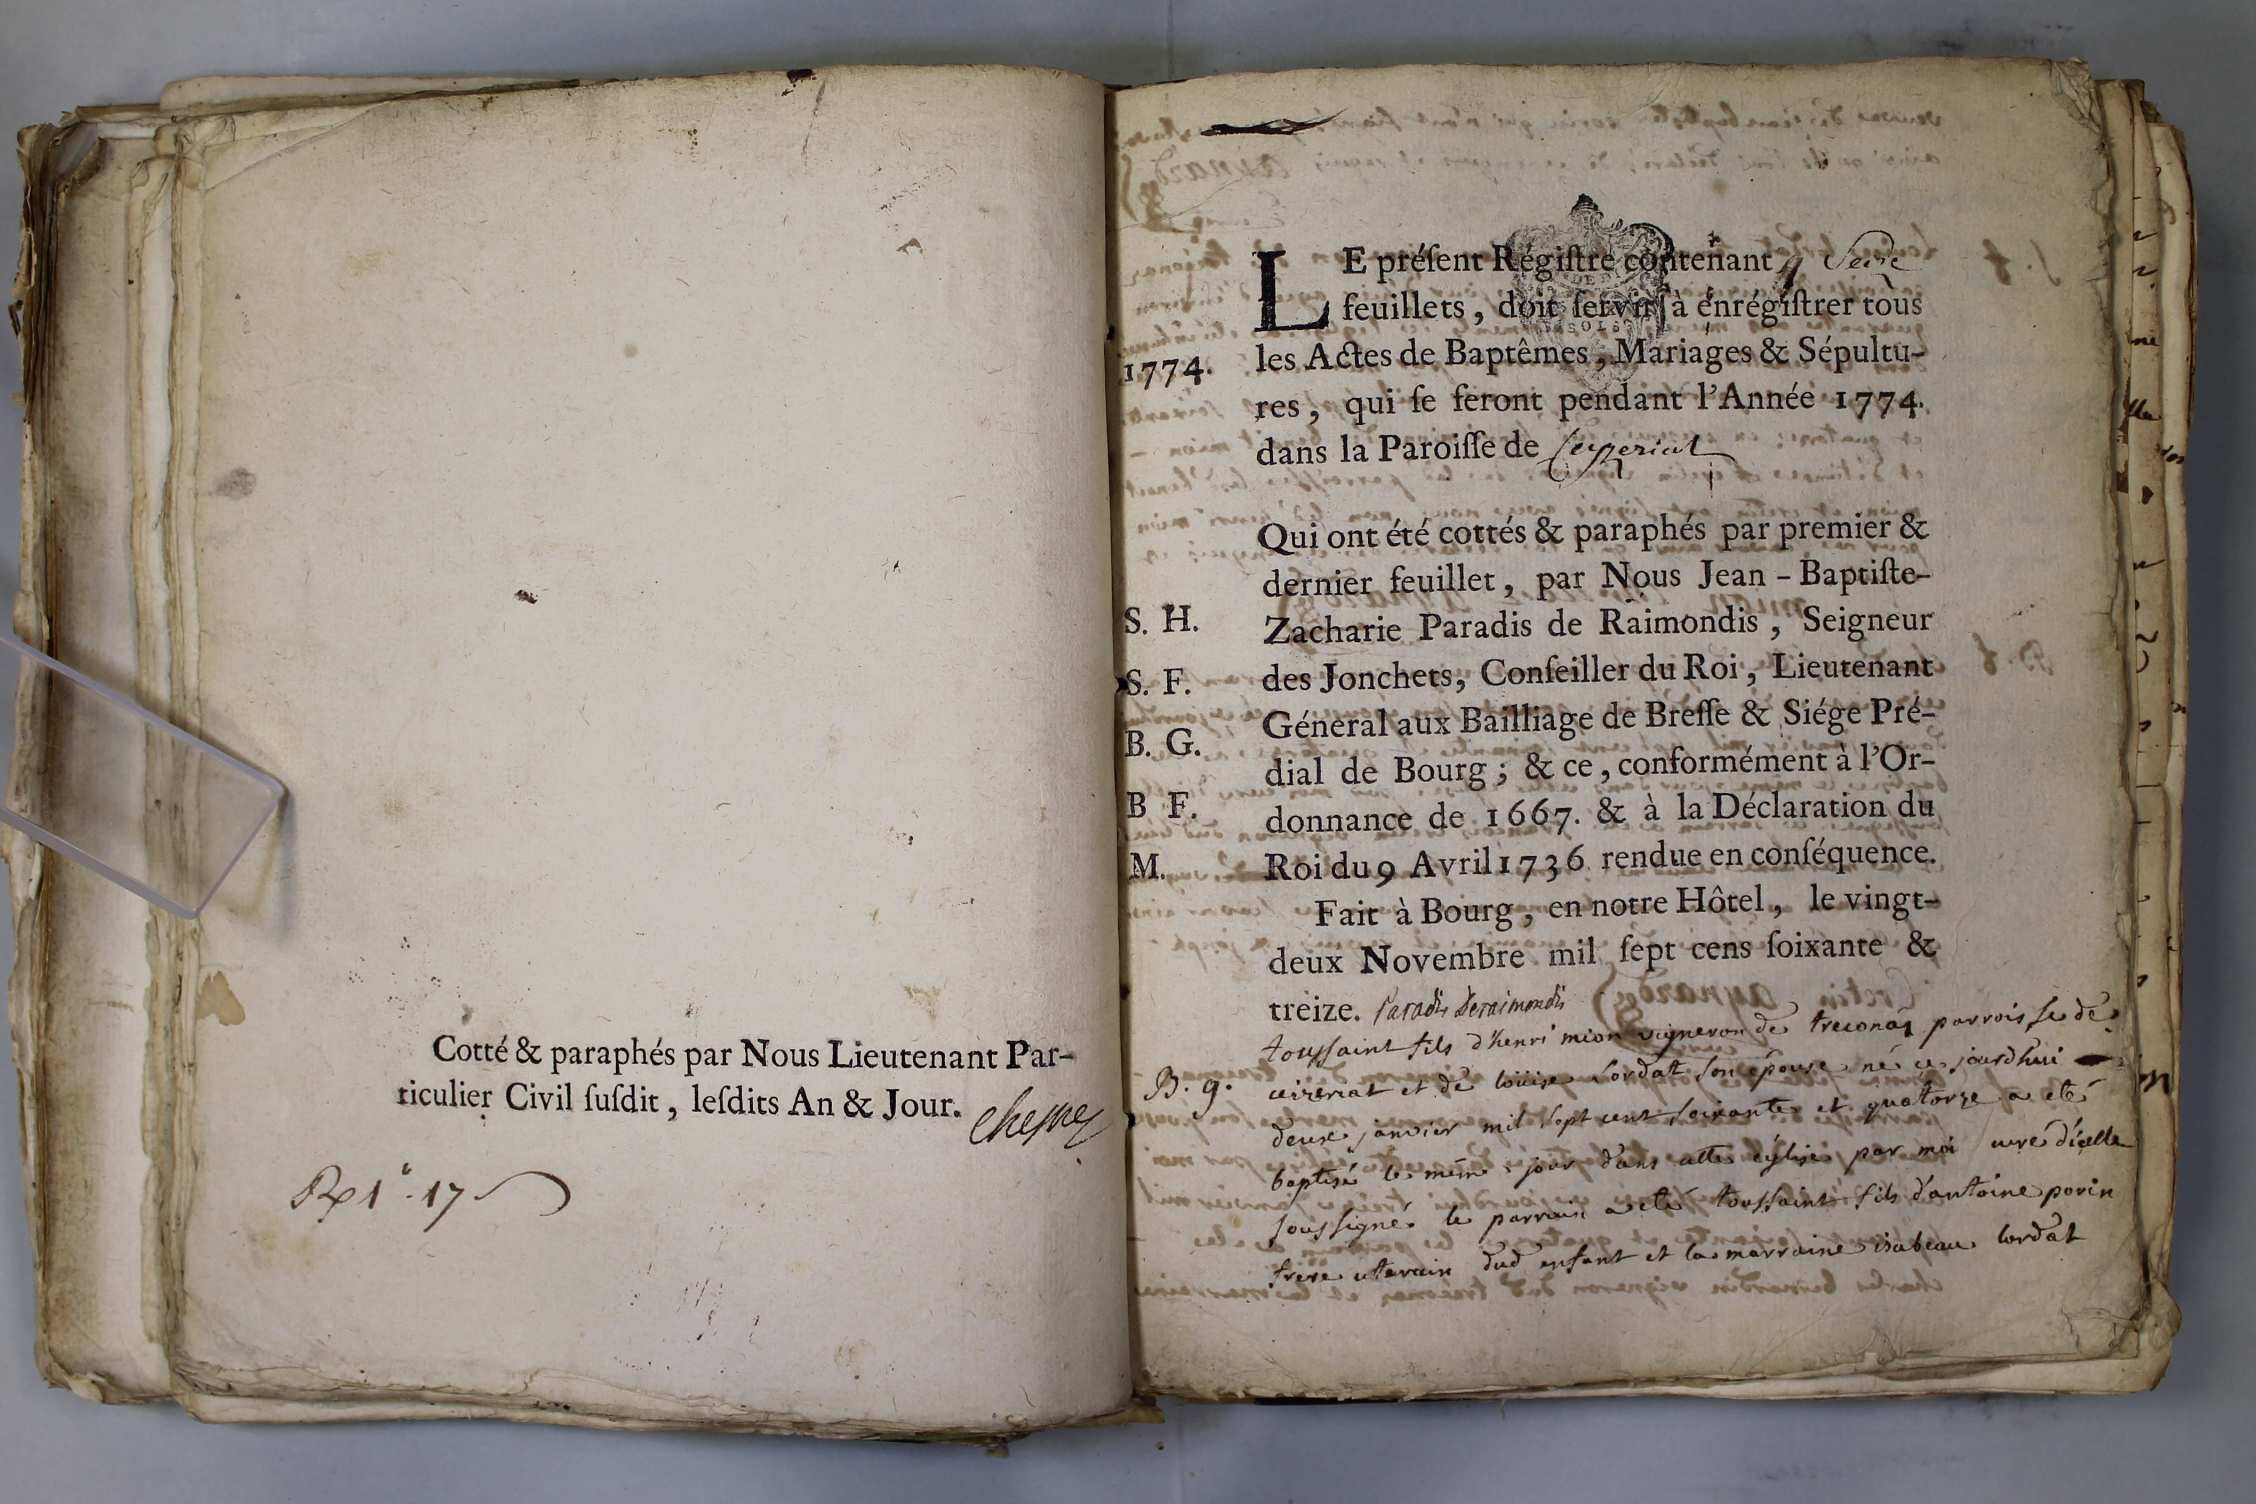 Cotté & paraphés par Nous Lieutenant Par-
ticulier Civil ſuſdit, leſdits An & Jour.
1774.
S. H.
S. F.
B. G.
B F.
M.
LE préſent Régiſtre contenant Seize
feuillets, doit ſervir à énrégiſtrer tous
les Actes de Baptêmes, Mariages & Sépultu-
res, qui ſe feront pendant l'Année 1774.
dans la Paroiſſe de Ceyzeriat
Qui ont été cottés & paraphés par premier &
dernier feuillet, par Nous Jean-Baptiſte-
Zacharie Paradis de Raimondis, Seigneur
des Jonchets, Conſeiller du Roi, Lieutenant
Géneral aux Bailliage de Breſſe & Siége Pré-
dial de Bourg; & ce, conformément à l'Or-
donnance de 1667. & à la Déclaration du
Roi du 9 Avril 1736 rendue en conſéquence.
Fait à Bourg, en notre Hôtel, le vingt-
deux Novembre mil ſept cens ſoixante &
treize. Paradis Deraimondis
B. g.
toussaint fils d'henri mion vigneron de treconas parroisse de
ceizeriat et de louise lordat son épouse né ce jourdhui
deux janvier mil sept cent soixante et quatorze a eté
baptisé le même jour dans cette église par moi curé d'icelle
soussigné le parrain a eté toussaint fils d'antoine porin
frere uterain dud enfant et la marraine isabeau lordat